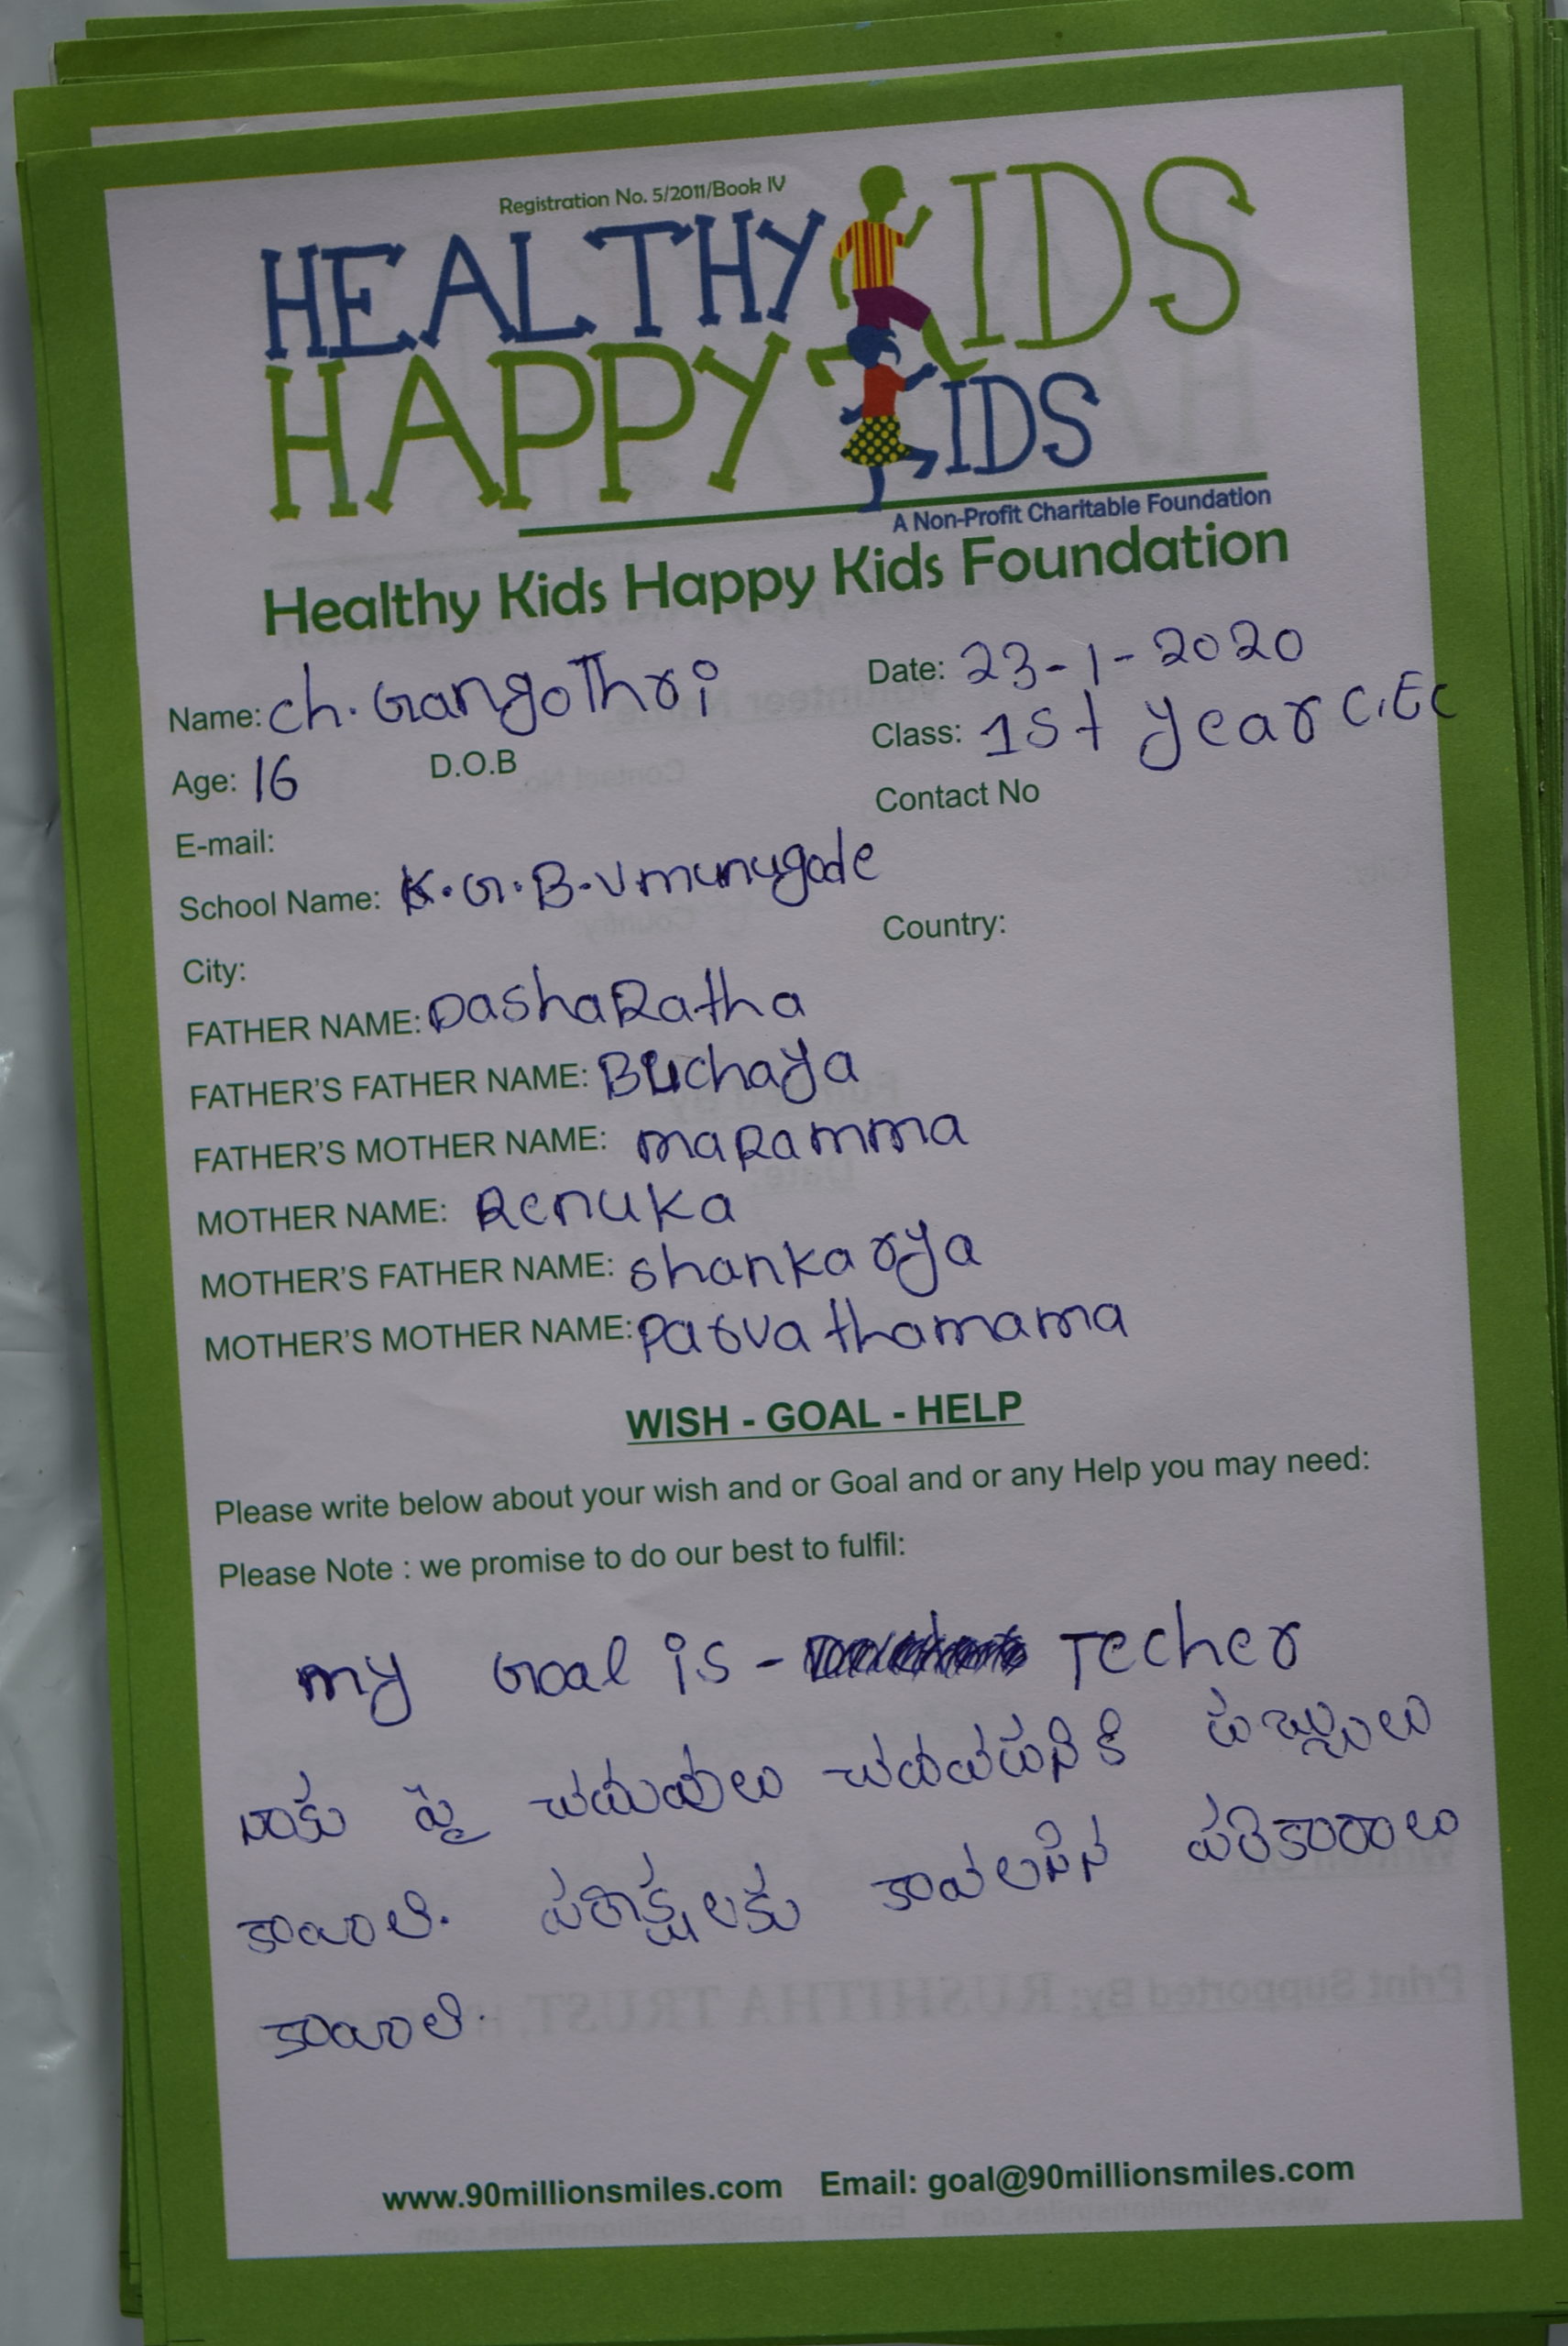 Registration No. 5/2011/Book IV
HEALTHY KIDS
HAPPY KIDS
A Non-Profit Charitable Foundation
Healthy Kids Happy Kids Foundation
Name: Ch. Gangothri Date: 23-1-2020
Age: 16 D.O.B Class: 1st year C.EC
E-mail: Contact No
School Name: K.G.B.V munugode
City: Country:
FATHER NAME: DashaRatha
FATHER'S FATHER NAME: Buchaya
FATHER'S MOTHER NAME: maRamma
MOTHER NAME: Renuka
MOTHER'S FATHER NAME: shankarya
MOTHER'S MOTHER NAME: parvathamama
WISH - GOAL - HELP
Please write below about your wish and or Goal and or any Help you may need:
Please Note : we promise to do our best to fulfil:
my Goal is - Techer
నాకు పై చదువులు చదవడానికి డబ్బులు
కావాలి. పరీక్షలకు కావలసిన పరికరాలు
కావాలి.
www.90millionsmiles.com Email: goal@90millionsmiles.com